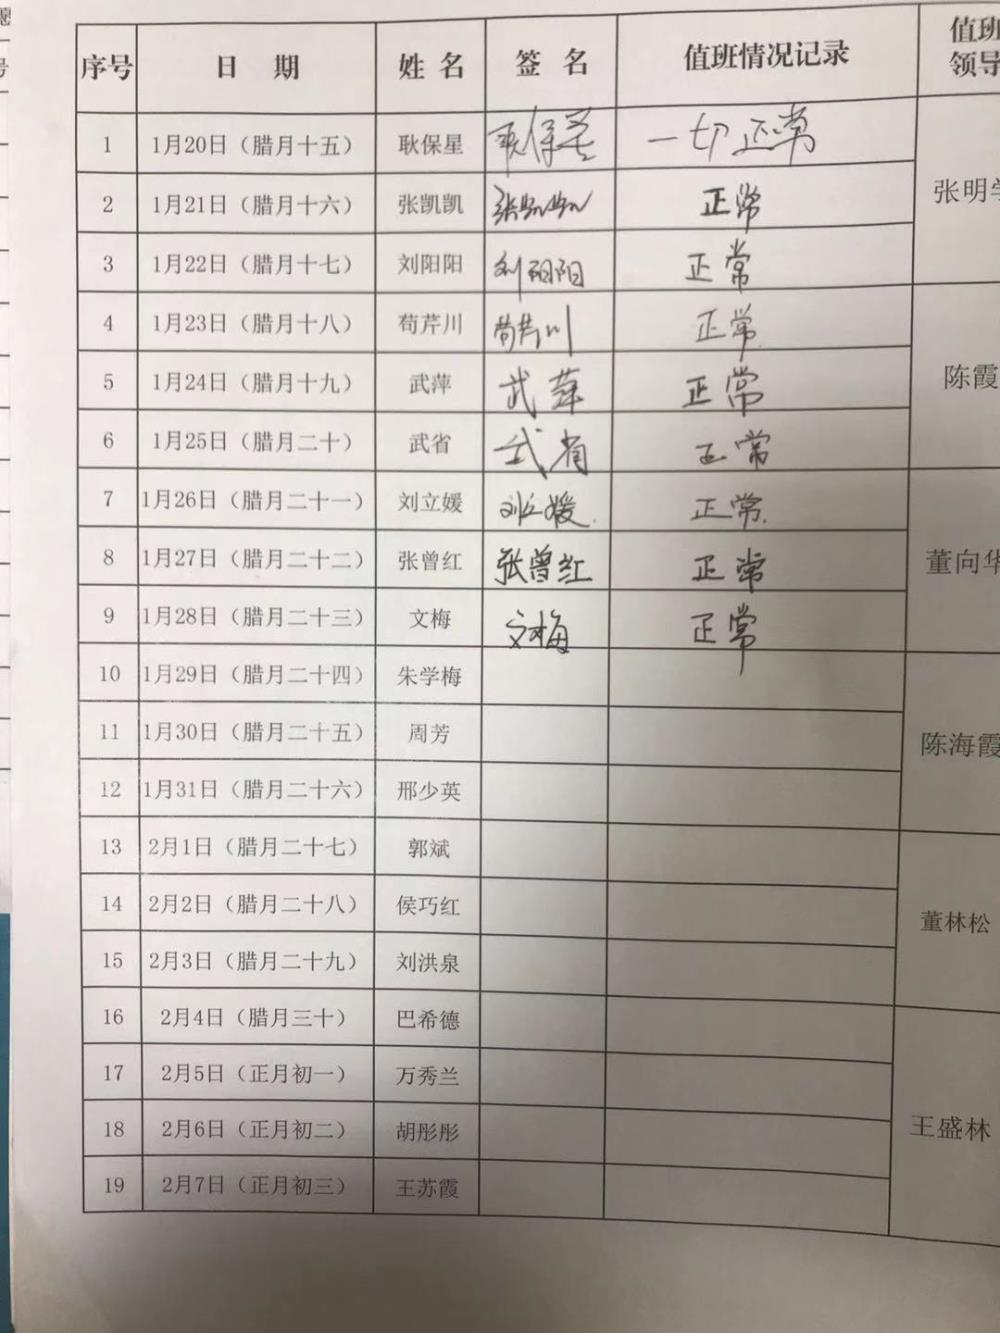 序号 日 期 姓 名 签 名 值班情况记录 值班领导
1 1月20日（腊月十五） 耿保星 耿保星 一切正常
张明学
2 1月21日（腊月十六） 张凯凯 张凯凯 正常
3 1月22日（腊月十七） 刘阳阳 刘阳阳 正常
4 1月23日（腊月十八） 荀芹川 荀芹川 正常
5 1月24日（腊月十九） 武萍 武萍 正常 陈霞
6 1月25日（腊月二十） 武省 武省 正常
7 1月26日（腊月二十一） 刘立媛 刘立媛 正常.
8 1月27日（腊月二十二） 张曾红 张曾红 正常 董向华
9 1月28日（腊月二十三） 文梅 文梅 正常
10 1月29日（腊月二十四） 朱学梅
11 1月30日（腊月二十五） 周芳 陈海霞
12 1月31日（腊月二十六） 邢少英
13 2月1日（腊月二十七） 郭斌
14 2月2日（腊月二十八） 侯巧红 董林松
15 2月3日（腊月二十九） 刘洪泉
16 2月4日（腊月三十） 巴希德
17 2月5日（正月初一） 万秀兰
18 2月6日（正月初二） 胡彤彤 王盛林
19 2月7日（正月初三） 王苏霞